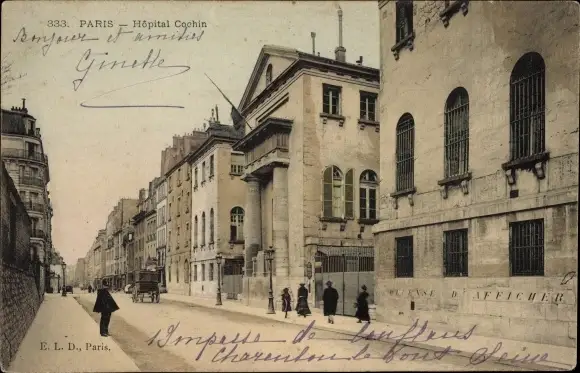 333. PARIS — Hôpital Cochin
Bonjour et amitiés
Ginette
DÉFENSE D'AFFICHER
E. L. D., Paris.
Impasse de
Charenton le Pont Seine